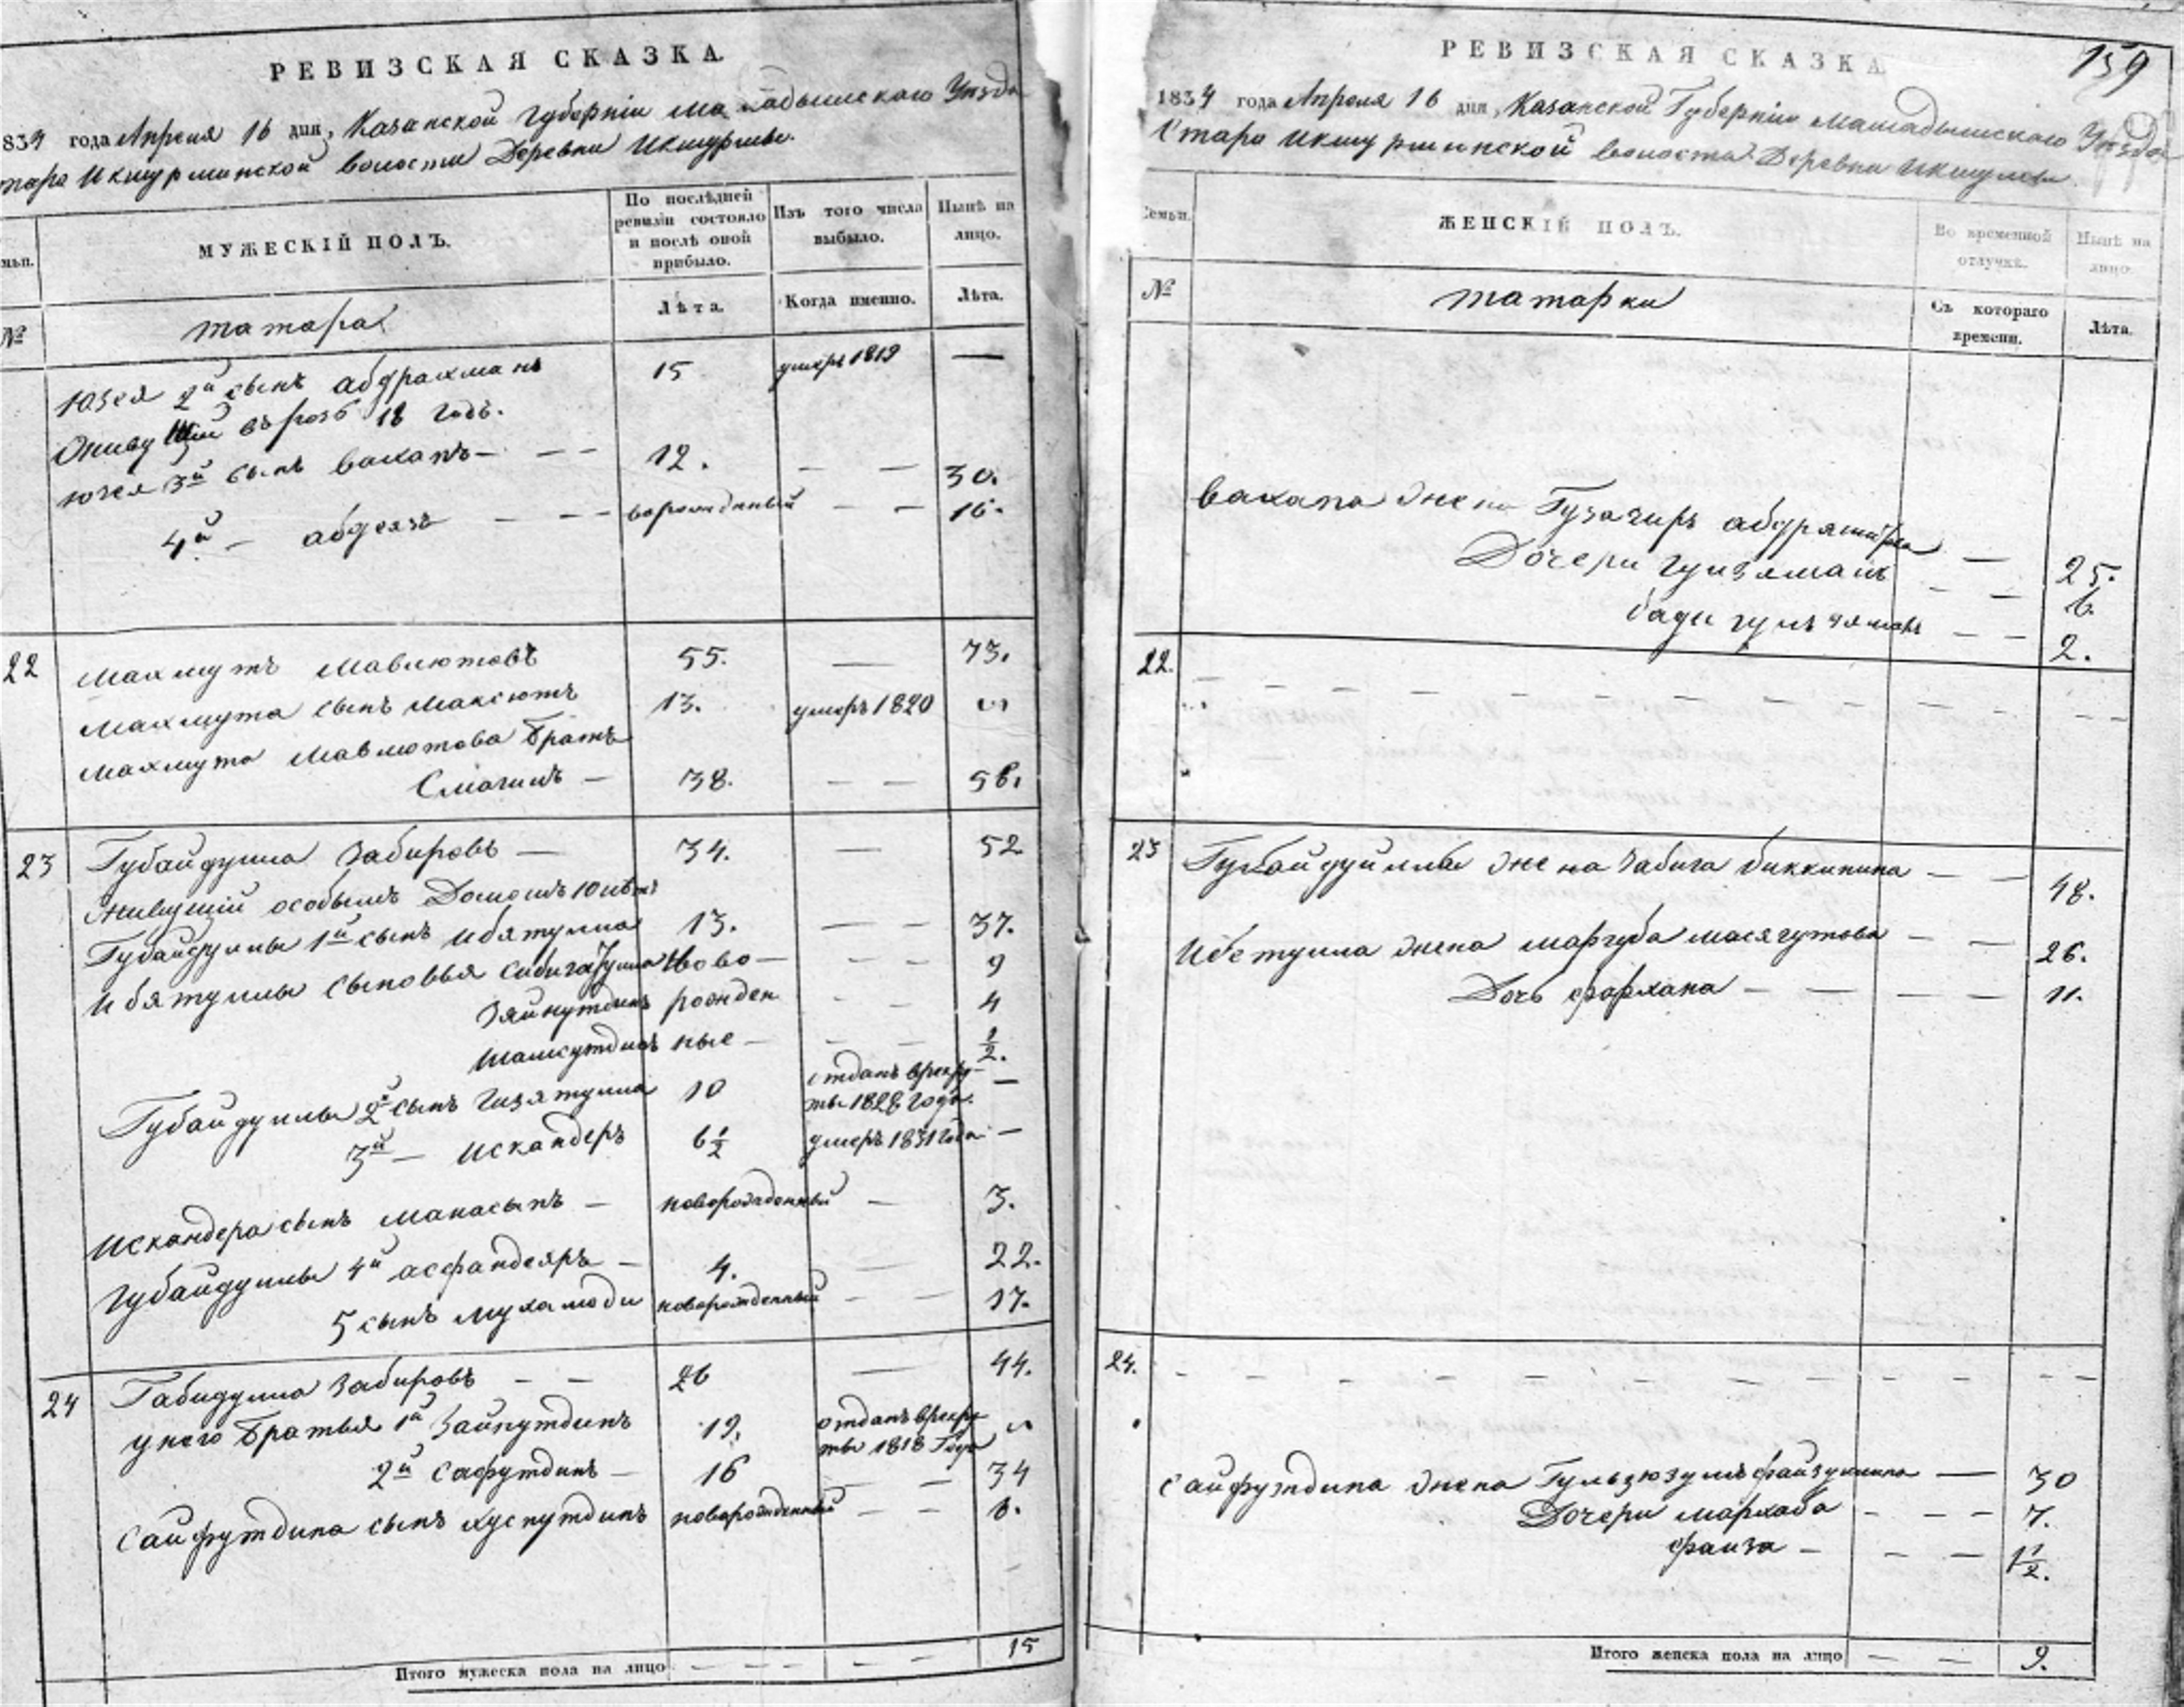 РЕВИЗСКАЯ СКАЗКА.
1834 года Апреля 16 дня, Казанской Губерніи Мамадышскаго Уезда
Старо Икшурминской волости Деревни Икшурмы.
МУЖЕСКІЙ ПОЛЪ.
По послѣдней ревизіи состояло и послѣ оной прибыло.
Изъ того числа выбыло.
Нынѣ на лицо.
№
татара
Лѣта.
Когда именно.
Лѣта.
2й сынъ абдрахманъ 15 умеръ 1819 —
въ розь 18 годъ.
3й сынъ вахапъ — — — 12. — — 30.
4й — — — — — 16.
22 Махмутъ Мавлютовъ 55. — 73.
Махмута сынъ Максютъ 13. умеръ 1820
Махмута Мавлютова Братъ
Смагилъ — 38. — — 56.
23 Губайдулла Забировъ — 34. — 52
Живущій особымъ Домомъ 10 летъ
Губайдуллы 1й сынъ Ибятулла 13. — — 37.
Ибятуллы сыновья Сибигатулла Ново — — — 9
Зяйнутдинъ рожден — — 4
Шамсутдинъ ные — — — 1/2.
Губайдуллы 2й сынъ Гизятулла 10 отданъ врекру- —
ты 1828 года.
3й — Искандеръ 6 1/2 умеръ 1831 года —
Искандера сынъ манасыпъ — новорожденный — 3.
Губайдуллы 4й асфандеяръ — 4. — 22.
5 сынъ мухамоди новорожденный — — 17.
24 Габидулла Забировъ — — 26 — 44.
у него Братья 1й Зайнутдинъ 19. отданъ врекру-
ты 1818 Года
2й Сафутдинъ — 16 — — 34
Сайфутдина сынъ хуснутдинъ новорожденный — — 6.
Итого мужеска пола на лицо — — — — — 15
159
РЕВИЗСКАЯ СКАЗКА
1834 года Апреля 16 дня, Казанской Губерніи Мамадышскаго Уезда
Старо Икшурминской волости Деревни
Семьи.
ЖЕНСКІЙ ПОЛЪ.
Во временной отлучкѣ.
Нынѣ на лицо.
№
татарки
Съ котораго времени.
Лѣта.
Вахапа жена — 25.
Дочери — — 6.
— — 2.
22. — — — — — — — — — —
23 Губайдуллы жена Забига биккинина — — 48.
Ибетулла жена маргуба масягутова — — 26.
Дочь фархана — — — — 11.
24. — — — — — — — — — —
Сайфутдина жена файзуллина — 30
Дочери мархаба — — — 7.
фаиза — — — 1 1/2.
Итого женска пола на лицо — — 9.